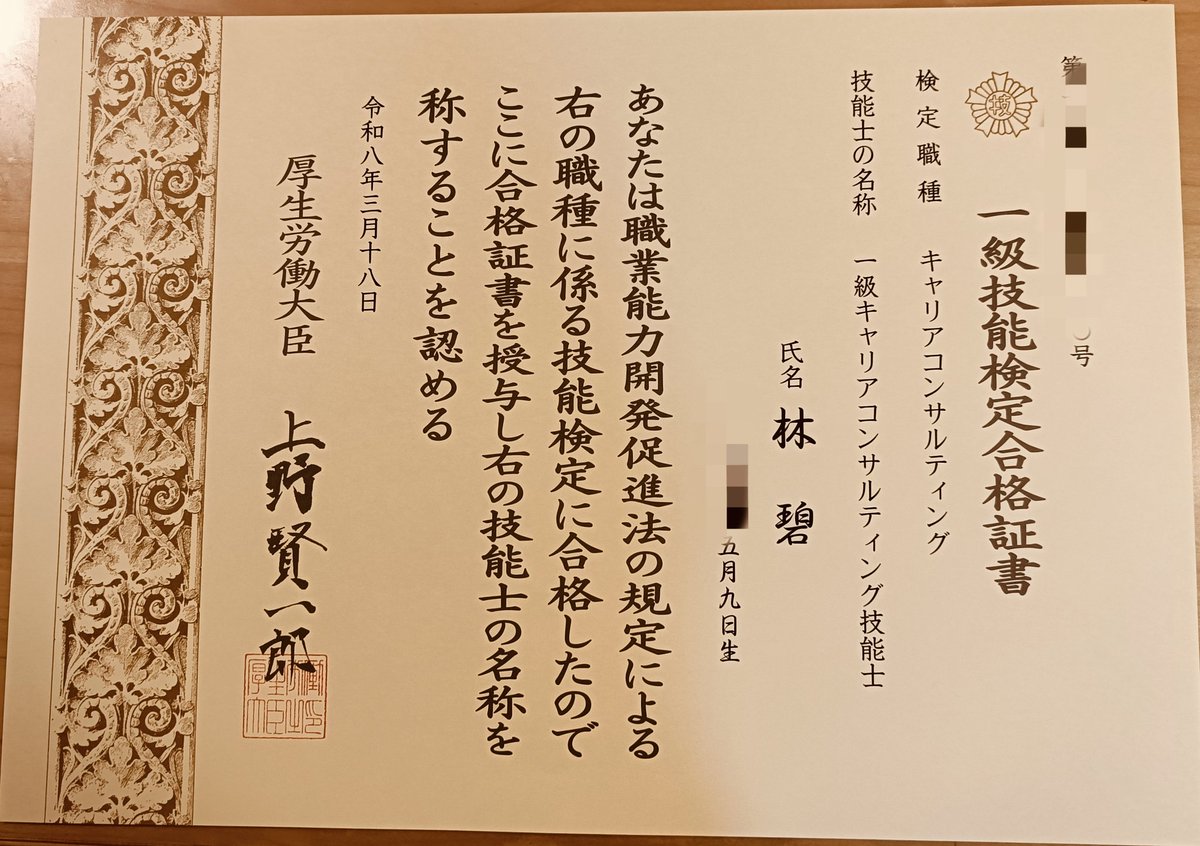 第
号
技
一級技能検定合格証書
検定職種 キャリアコンサルティング
技能士の名称 一級キャリアコンサルティング技能士
氏名 林 碧
五月九日生
あなたは職業能力開発促進法の規定による
右の職種に係る技能検定に合格したので
ここに合格証書を授与し右の技能士の名称を
称することを認める
令和八年三月十八日
厚生労働大臣 上野賢一郎